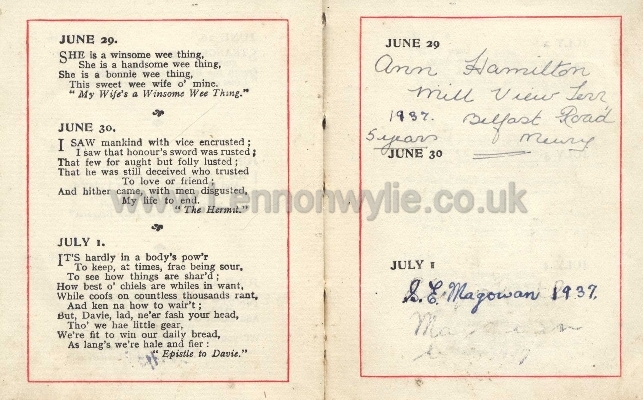 JUNE 29.
SHE is a winsome wee thing,
She is a handsome wee thing,
She is a bonnie wee thing,
This sweet wee wife o' mine.
"My Wife's a Winsome Wee Thing."
JUNE 30.
I SAW mankind with vice encrusted;
I saw that honour's sword was rusted;
That few for aught but folly lusted;
That he was still deceived who trusted
To love or friend;
And hither came, with men disgusted,
My life to end.
"The Hermit."
JULY 1.
IT'S hardly in a body's pow'r
To keep, at times, frae being sour,
To see how things are shar'd;
How best o' chiels are whiles in want,
While coofs on countless thousands rant,
And ken na how to wair't;
But, Davie, lad, ne'er fash your head,
Tho' we hae little gear,
We're fit to win our daily bread,
As lang's we're hale and fier:
"Epistle to Davie."
JUNE 29
Ann Hamilton
Mill View Terr
1937. Belfast Road
5 years Newry
JUNE 30
JULY 1
S. E. Magowan 1937.
www.Lennonwylie.co.uk